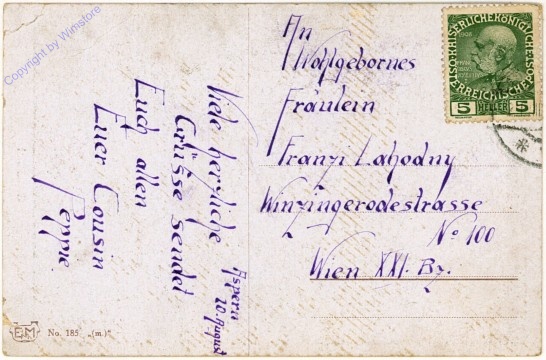 Copyright by Wimstore
An
Wohlgebornes
Fräulein
Franzi Lahodny
Winzingerodestrasse
No 100
Wien XXI. Bz.
Aspern
20. August
Viele herzliche
Grüsse sendet
Euch allen
Euer Cousin
Peppe
1908
5 HELLER 5
EM
No. 185 „(m.)"